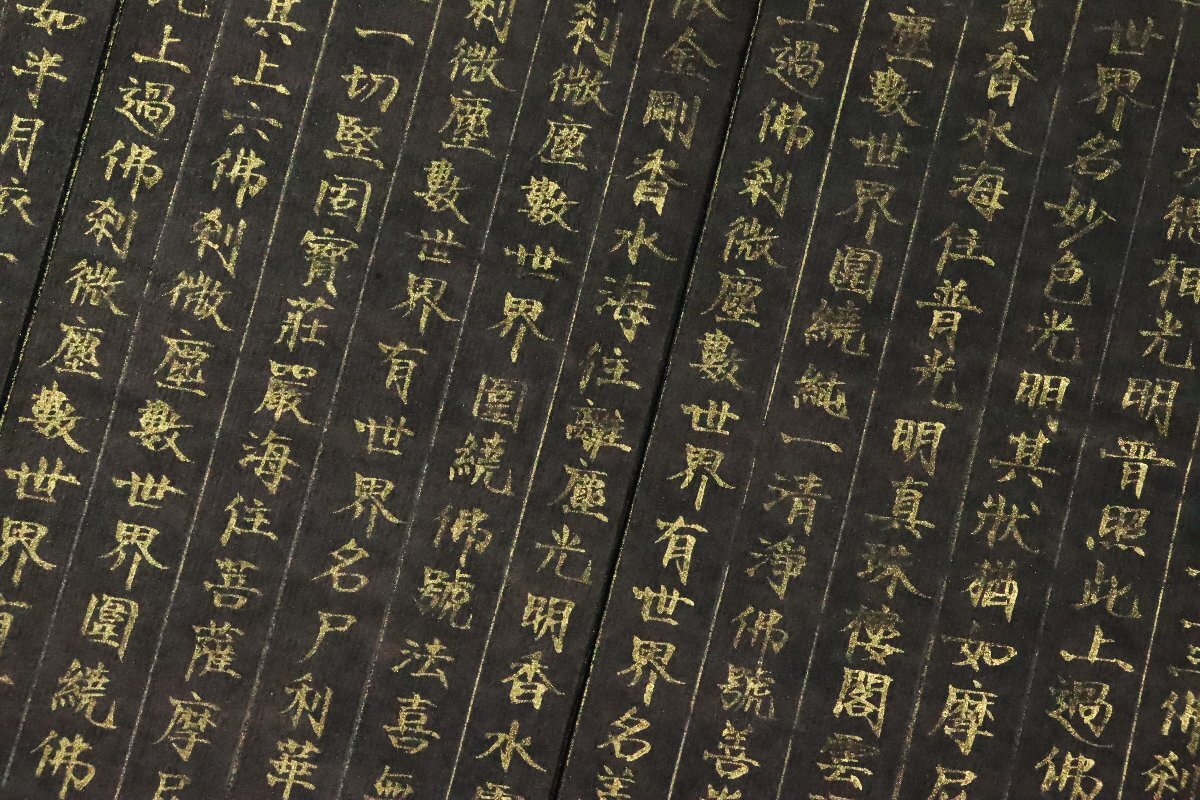 三佛刹
德相光明普照此上過佛
世界名妙色光明其狀猶如摩尼
寶香水海住普光明真珠樓閣雲
塵數世界圍繞純一清淨佛號善
上過佛刹微塵數世界有世界名
金剛香水海住離塵光明香水
刹微塵數世界圍繞佛號法喜無
刹微塵數世界有世界名尸利華
一切堅固寶莊嚴海住菩薩摩尼
其上六佛刹微塵數世界圍繞佛
上過佛刹微塵數世界有
如半月衣一